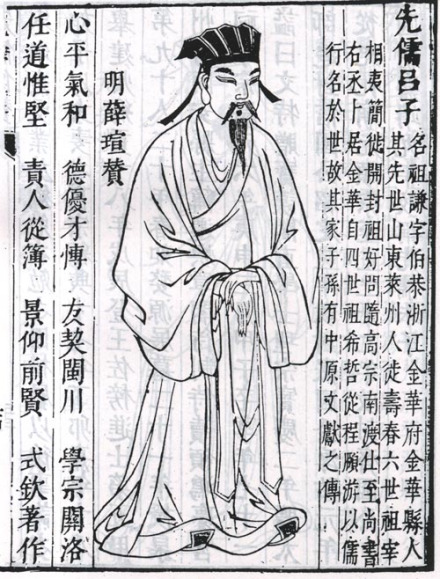 先儒呂子
名祖謙字伯恭浙江金華府金華縣人
其先世山東萊州人徙壽春六世祖宰
相夷簡徙開封祖好問隨高宗南渡仕至尚書
右丞卜居金華自四世祖希哲從程願游以儒
行名於世故其家子孫有中原文獻之傳
明薛瑄贊
心平氣和 德優才博 友契閩川 學宗關洛
任道惟堅 責人從簿 景仰前賢 式欽著作